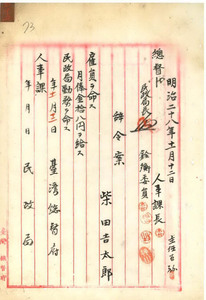 明治二十八年十一月十二日
總督
民政局長
人事課長
主任
辞令案
柴田吉太郎
雇員ヲ命ス
月俸金拾八円ヲ給ス
民政局勤務ヲ命ス
十一月十二日
臺灣總督府
人事課
年月日
民政局
73